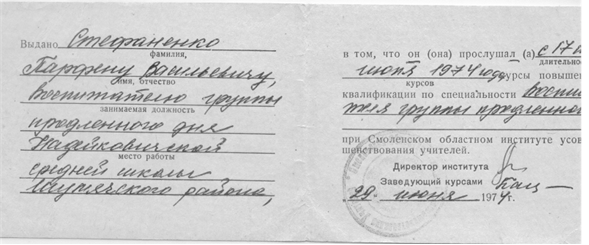 Выдано Стефаненко
фамилия,
Парфену Васильевичу,
имя, отчество
воспитателю группы
занимаемая должность
продленного дня
Надейковичской
место работы
средней школы
Шумячского района,
в том, что он (она) прослушал (а) с 17
длительно
июня 1974 года курсы повыше
курсов
квалификации по специальности воспи
теля группы продленной
при Смоленском областном институте усов
шенствования учителей.
Директор института
Заведующий курсами
29 июня 1974г.